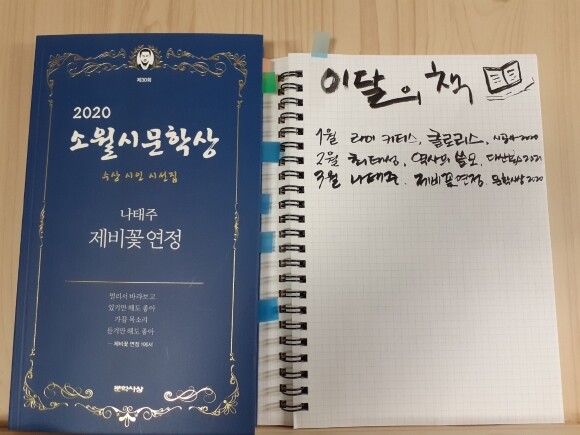 제30회
2020
소월시문학상
수상 시인 시선집
나태주
제비꽃 연정
멀리서 바라보고
있기만 해도 좋아
가끔 목소리
듣기만 해도 좋아
— 제비꽃 연정 109서
문학사상
이달의 책
1월 라이 커티스, 클로리스, 시공사 2020
2월 최태성, 역사의 쓸모, 다산초당 2021
3월 나태주. 제비꽃연정. 문학사상 2020